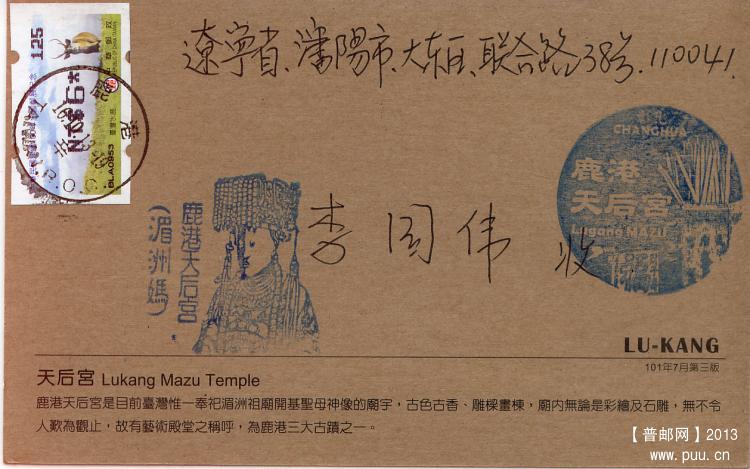 遼宁省、瀋陽市、大东区、联合路38号.110041.
125
NT$6*
6LA0953
鹿港
CHANGHUA
鹿港
天后宮
Lugang MAZU
鹿港天后宮
(湄洲媽)
李国伟 收
LU-KANG
101年7月第三版
天后宮 Lukang Mazu Temple
鹿港天后宮是目前臺灣惟一奉祀湄洲祖廟開基聖母神像的廟宇，古色古香、雕樑畫棟，廟內無論是彩繪及石雕，無不令
人歎為觀止，故有藝術殿堂之稱呼，為鹿港三大古蹟之一。
【普邮网】2013
www.puu.cn